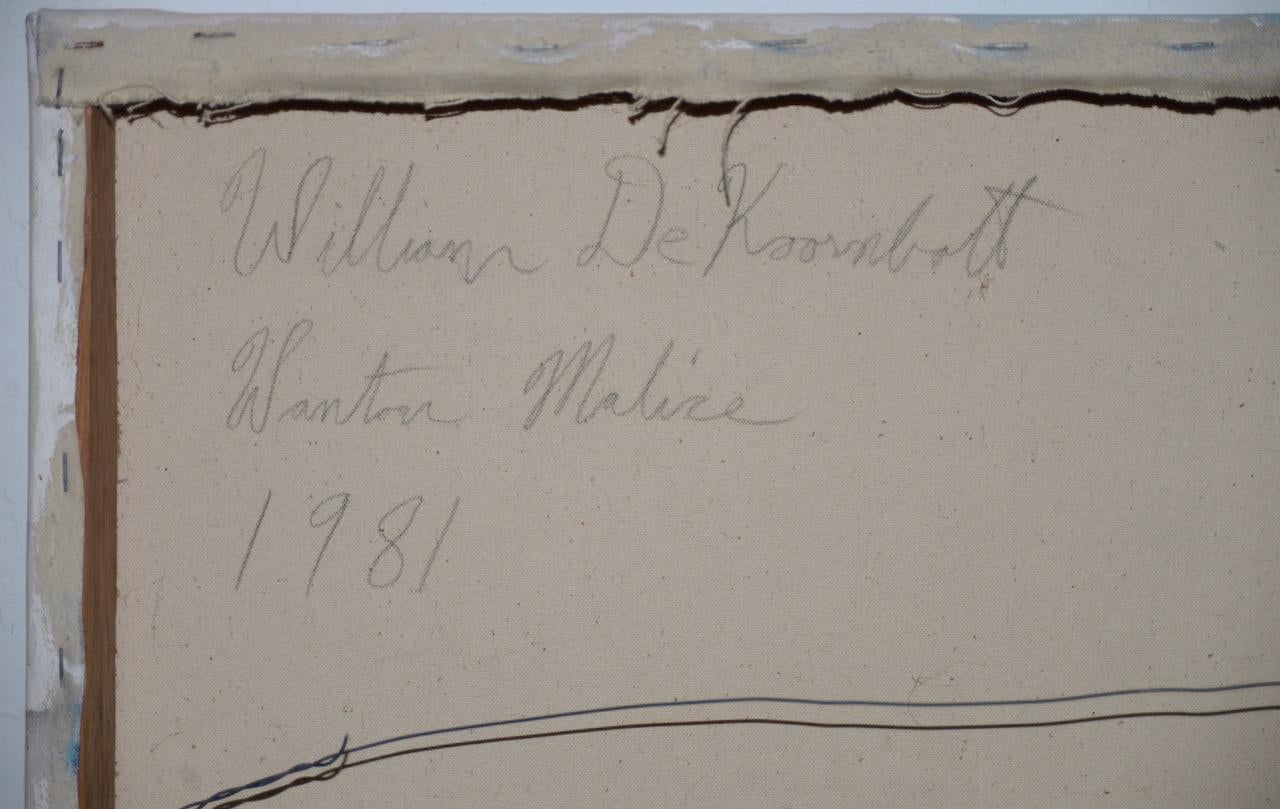 William DeKoornbott
Wanton Malice
1981